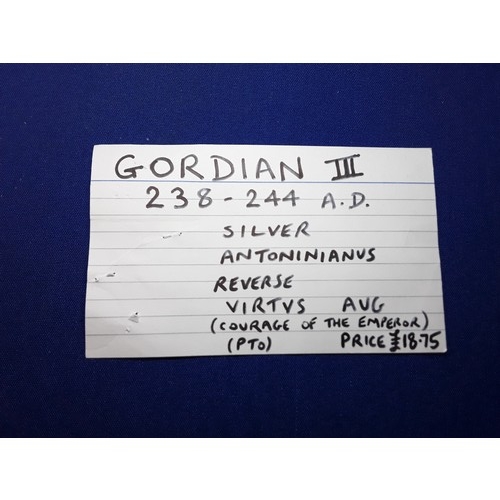 GORDIAN III
238-244 A.D.
SILVER
ANTONINIANUS
REVERSE
VIRTVS AUG
(COURAGE OF THE EMPEROR)
(PTO) PRICE £18.75